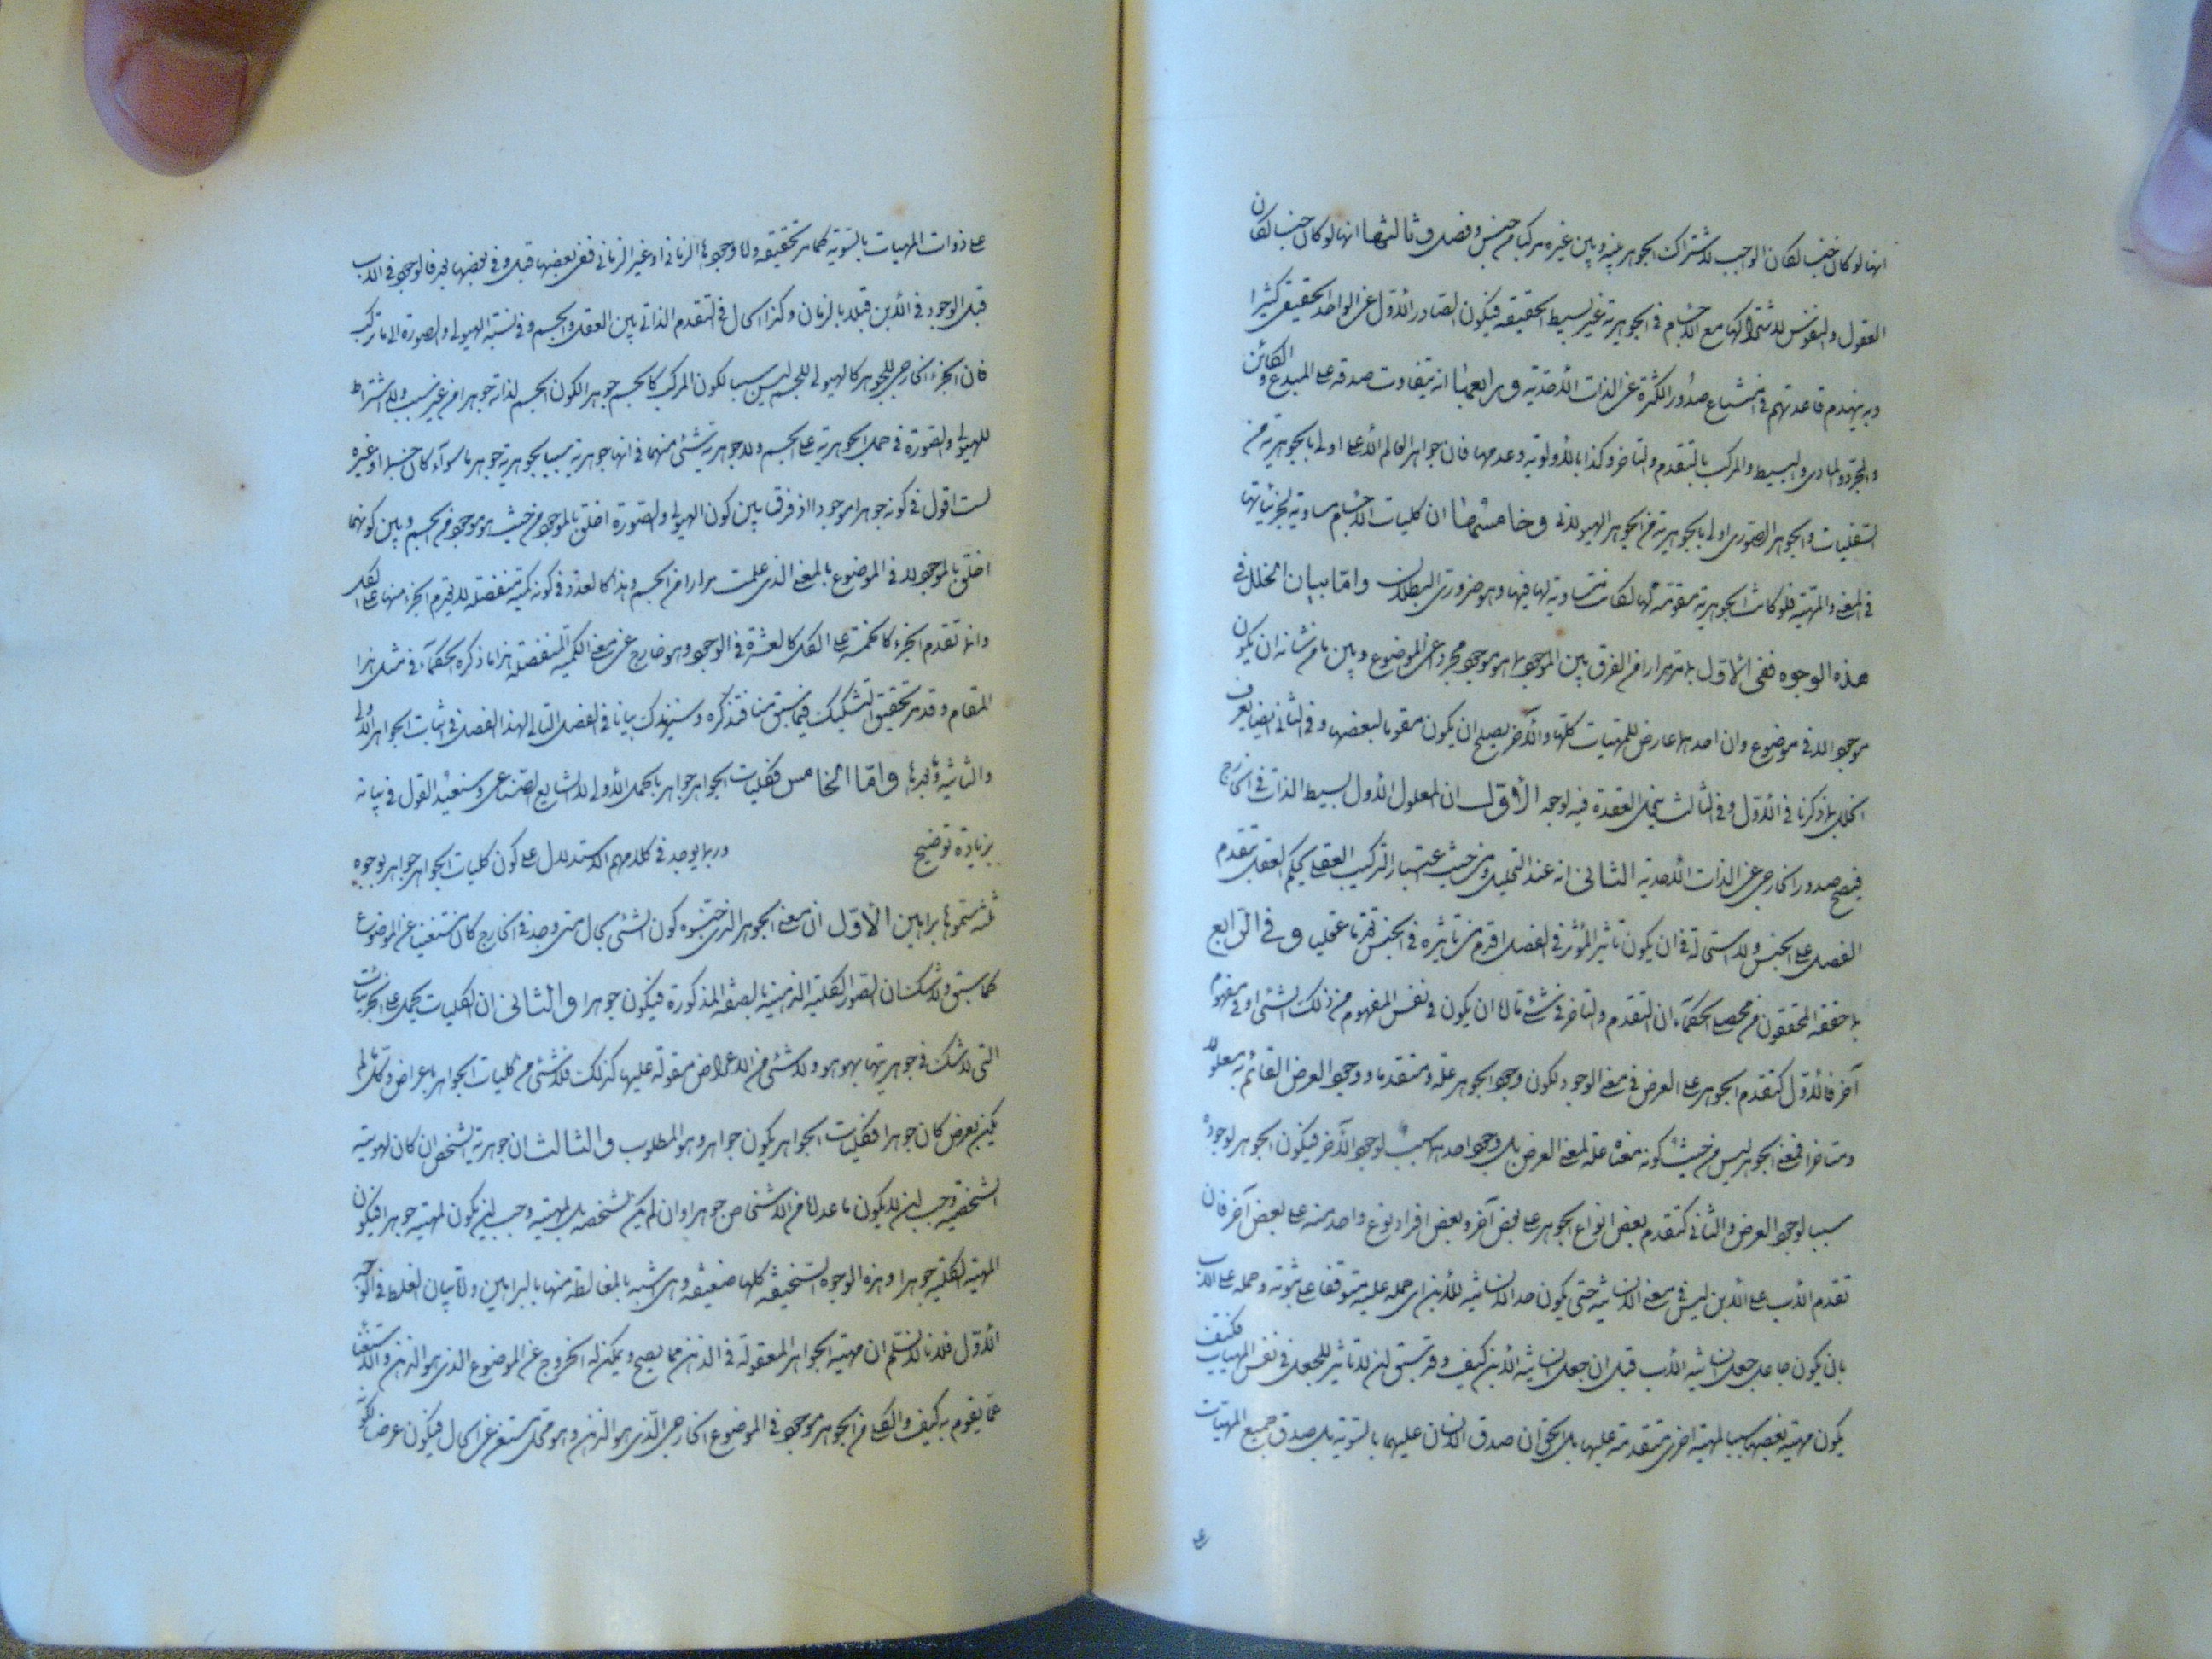 انها لو كان جنسا لكان الواجب لاشتراك الجوهر بينه وبين غيره مركبا من جنس وفصل وثالثها انها لو كان جنسا لكان
العقول والنفوس لاشتراكها مع الاجسام في الجوهرية غير بسيط الحقيقة فيكون الصادر الأول عن الواحد الحقيقي كثيرا
وبه ينهدم قاعدتهم في امتناع صدور الكثرة عن الذات الأحدية ورابعها انه يتفاوت صدقه على المبدع والكائن
والمجرد والمادي والبسيط والمركب بالتقدم والتأخر وكذا بالأولوية وعدمها فان جواهر العالم الأعلى اولى بالجوهرية من
السفليات والجوهر الصوري اولى بالجوهرية من الجوهر الهيولاني وخامسها ان كليات الأجسام مساوية لجزئياتها
في المعنى والمهية فلو كانت الجوهرية مقومة لها لكانت متساوية لها فيها وهو ضروري البطلان واما بيان الخلل في
هذه الوجوه ففي الأول بما مر مرارا من الفرق بين الموجود بما هو موجود مجرد عن الموضوع وبين ما من شانه ان يكون
موجودا لا في موضوع وان احدهما عارض للمهيات كلها والآخر يصلح ان يكون مقوما لبعضها وفي الثاني ايضا يعرف
الخلل بما ذكرنا في الأول وفي الثالث ينحل العقدة فيه لوجه الأول ان المعلول الأول بسيط الذات في الخارج
فيصح صدور الخارجي عن الذات الأحدية الثاني انه عند التحليل ومن حيث اعتبار التركيب العقلي يحكم العقل بتقدم
الفصل على الجنس ولا استحالة في ان يكون تاثير المؤثر في الفصل اقدم من تاثيره في الجنس تقدما عقليا وفي الرابع
بما حققه المحققون من محصلي الحكماء ان التقدم والتأخر في شيء ما اما ان يكون في نفس المفهوم من ذلك الشيء او في مفهوم
آخر فالأول كتقدم الجوهر على العرض في معنى الوجود لكون وجود الجوهر علة ومتقدما ووجود العرض القائم به معلولا
ومتأخرا فمعنى الجوهر ليس من حيث كونه معناه علة لمعنى العرض بل وجود احدهما سبب لوجود الآخر فيكون الجوهر لوجوده
سببا لوجود العرض والثاني كتقدم بعض انواع الجوهر على بعض آخر وبعض افراد نوع واحد منه على بعض آخر فان
تقدم الأب على الأبن ليس في معنى الانسانية حتى يكون حد الانسانية للأبن اى حمله عليه متوقفا على ثبوته وحمله على الأب
بان يكون جاعل جعل انسانية الأب قبل ان جعل انسانية الأبن كيف وقد سبق ان لا تاثير للجعل في نفس المهيات فكيف
يكون مهية بعضها سببا لمهية اخرى متقدمة عليها بل الحق ان صدق الانسان عليهما بالسوية بل صدق جميع المهيات
على ذوات المهيات بالسوية كما مر تحقيقه واما وجودها الزماني او غير الزماني ففي بعضها قبل وفي بعضها بعد فالوجود في الأب
قبل الوجود في الأبن قبلا بالزمان وكذا الحال في التقدم الذاتي بين العقل والجسم وفي نسبة الهيولى والصورة الى ما تركب
فان الجزء الخارجي للجوهر كالهيولى للجسم ليس سببا لكون المركب كالجسم جوهرا لكون الجسم لذاته جوهرا من غير سبب ولا اشتراط
للهيولى والصورة في حمل الجوهرية على الجسم ولا جوهرية شيء منهما في انها جوهرية سبب الجوهرية جوهر ما سواء كان جنسا او غيره
لست اقول في كونه جوهرا موجودا اذ فرق بين كون الهيولى والصورة اخلق بالموجود من حيث هو موجود من الجسم وبين كونهما
اخلق بالموجود لا في الموضوع بالمعنى الذي علمت مرارا من الجسم وهذا كالعدد في كونه كمية منفصلة لا يقدم الجزء منها على الكل
وانما تقدم الجزء كالخمسة على الكل كالعشرة في الوجود وهو خارج عن معنى الكمية المنفصلة هذا ما ذكره الحكماء في مثل هذا
المقام وقد مر تحقيق التشكيك فيما سبق منا فتذكره وسنزيدك بيانا في الفصل التالي لهذا الفصل في اثبات الجواهر الأولى
والثانية وما بعدها واما الخامس فكليات الجواهر جواهر بالحمل الأولى لا الشايع الصناعي وسنعيد القول في بيانه
بزيادة توضيح وربما يوجد في كلامهم الاستدلال على كون كليات الجواهر جواهر بوجوه
ثلثة سموها براهين الأول ان معنى الجوهر الذي جنسوه كون الشيء بحال متى وجد في الخارج كان مستغنيا عن الموضوع
كما سبق ولا شك ان الصور الكلية الذهنية بالصفة المذكورة فيكون جوهرا والثاني ان الكليات يحمل على الجزئيات
التي لا شك في جوهريتها بهو هو ولا شيء من الاعراض مقولة عليها كذلك فلا شيء من كليات الجواهر باعراض وكل ما لم
يكن بعرض كان جوهرا فكليات الجواهر يكون جواهر وهو المطلوب والثالث ان جوهرية الشخص ان كان لهويته
الشخصية وجب ان لا يكون ما عداه من الاشخاص جوهرا وان لم يكن لشخصه بل لمهيته وجب ان يكون المهية جوهرا فيكون
المهية الكلية جوهرا وهذه الوجوه السخيفة كلها ضعيفة وهي اشبه بالمغالطة منها بالبراهين واما بيان الغلط في الوجه
الأول فلانا لا نسلم ان مهية الجواهر المعقولة في الذهن مما يصح ويمكن له الخروج عن الموضوع الذي هو الذهن والاستغناء
عما يقوم به كيف والكلي من الجوهر موجود في الموضوع الخارجي الذي هو الذهن وهو محل مستغن عن الحال فيكون عرضا لكونه